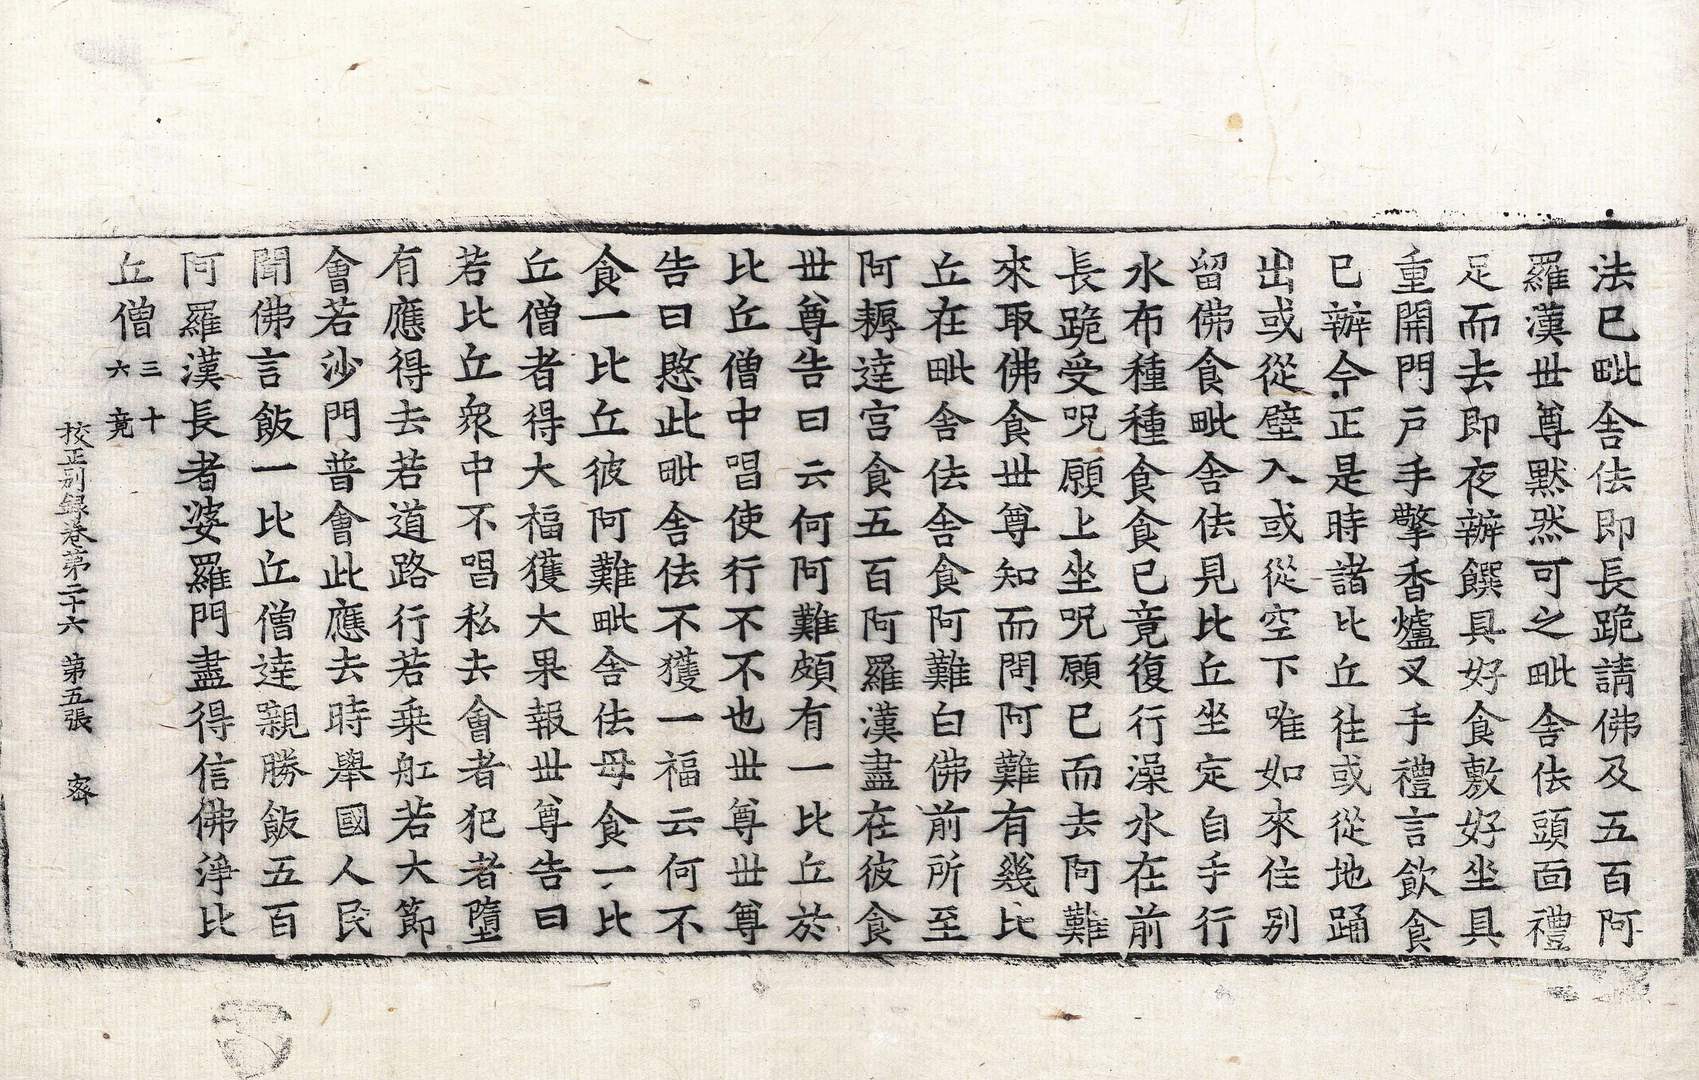 法已毗舍佉即長跪請佛及五百阿
羅漢世尊默然可之毗舍佉頭面禮
足而去即夜辦饌具好食敷好坐具
重開門戶手擎香爐叉手禮言飲食
已辦今正是時諸比丘往或從地踊
出或從壁入或從空下唯如來住別
留佛食毗舍佉見比丘坐定自手行
水布種種食食已竟復行澡水在前
長跪受呪願上坐呪願已而去阿難
來取佛食世尊知而問阿難有幾比
丘在毗舍佉舍食阿難白佛前所至
阿耨達宮食五百阿羅漢盡在彼食
世尊告曰云何阿難頗有一比丘於
比丘僧中唱使行不不也世尊世尊
告曰愍此毗舍佉不獲一福云何不
食一比丘彼阿難毗舍佉母食一比
丘僧者得大福獲大果報世尊告曰
若比丘衆中不唱私去會者犯者墮
有應得去若道路行若乘舡若大節
會若沙門普會此應去時舉國人民
聞佛言飯一比丘僧逹親勝飯五百
阿羅漢長者婆羅門盡得信佛淨比
丘僧三十六竟
校正别録卷第二十六 第五張 宻